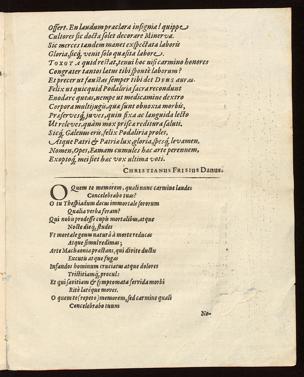 Offert. En laudum praclara insignia! quippe
Cultores sic docta solet decorare Minerva.
Sic merces tandem manes exspectata laboris
Gloria, sicq; venit solo quasita labore.
TOXOTA quid restat, tenui hoc nisi carmino honores
Congrater tantos latus tibi sponte laborum?
Et precer ut faustas semper tibi det DEUS auras.
Felix ut quicquid Podaliria sacra recondunt
Enodare queas, nempe ut medicamine dextro
Corpora multijugis, qua sunt obnoxia morbis,
Praserves, juves, quin fixa ac languida lecto
Ut releves, quam mox prisca reditura saluti.
Sicq; Galenueris, felix Podaliria proles,
Atque Patri & Patria lux, gloria, spes, levamen,
Nomen, spes, Eamam cumules hac arte perennem,
Exoptoq; mei siet hac vox ultima voti.
CHRISTIANUS FRISIUS Danus.
O Quem te memorem, quali nunc carmine laudes
Concelebrabo tuas?
O tu Thespiadum decus immortale sororum
Qualia verba feram?
Qui nobis prodesse cupis mortalibus, atque
Nocte dieq; studes
Et mortale genus naturâ à morte reducas
Atque simul redimas;
Arte Machaonia prastans, qui divite ductu
Excutis atque fugas
Infandos hominum cruciatus atque dolores
Tristitiamq; procul:
Et qui savitiam & symptomata fervida morbi
Ritè latique moves.
O quem te (repeto) memorem, sed carmine quali
Concelebrabo tuum
No-